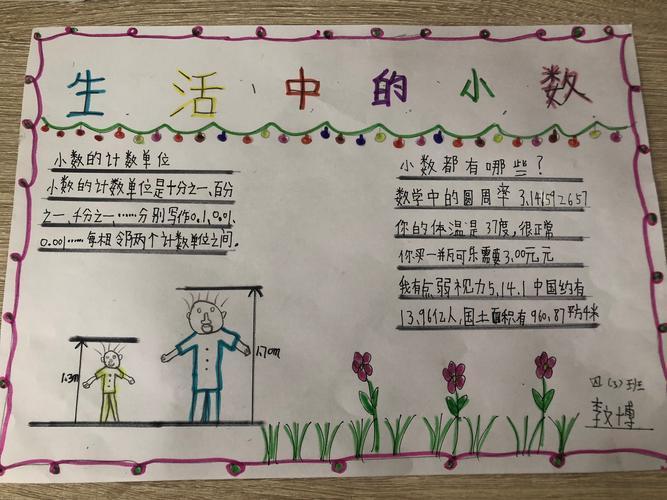 生活中的小数
小数的计数单位
小数的计数单位是十分之一、百分
之一、千分之一……分别写作0.1、0.01、
0.001……每相邻两个计数单位之间.
1.3m
1.70m
小数都有哪些？
数学中的圆周率 3.141592657
你的体温是37度,很正常
你买一并瓦可乐需要3.00元元
我有点弱视力5,14.1中国约有
13.96亿人,国土面积有960.87平方千米
四(3)班
李文博